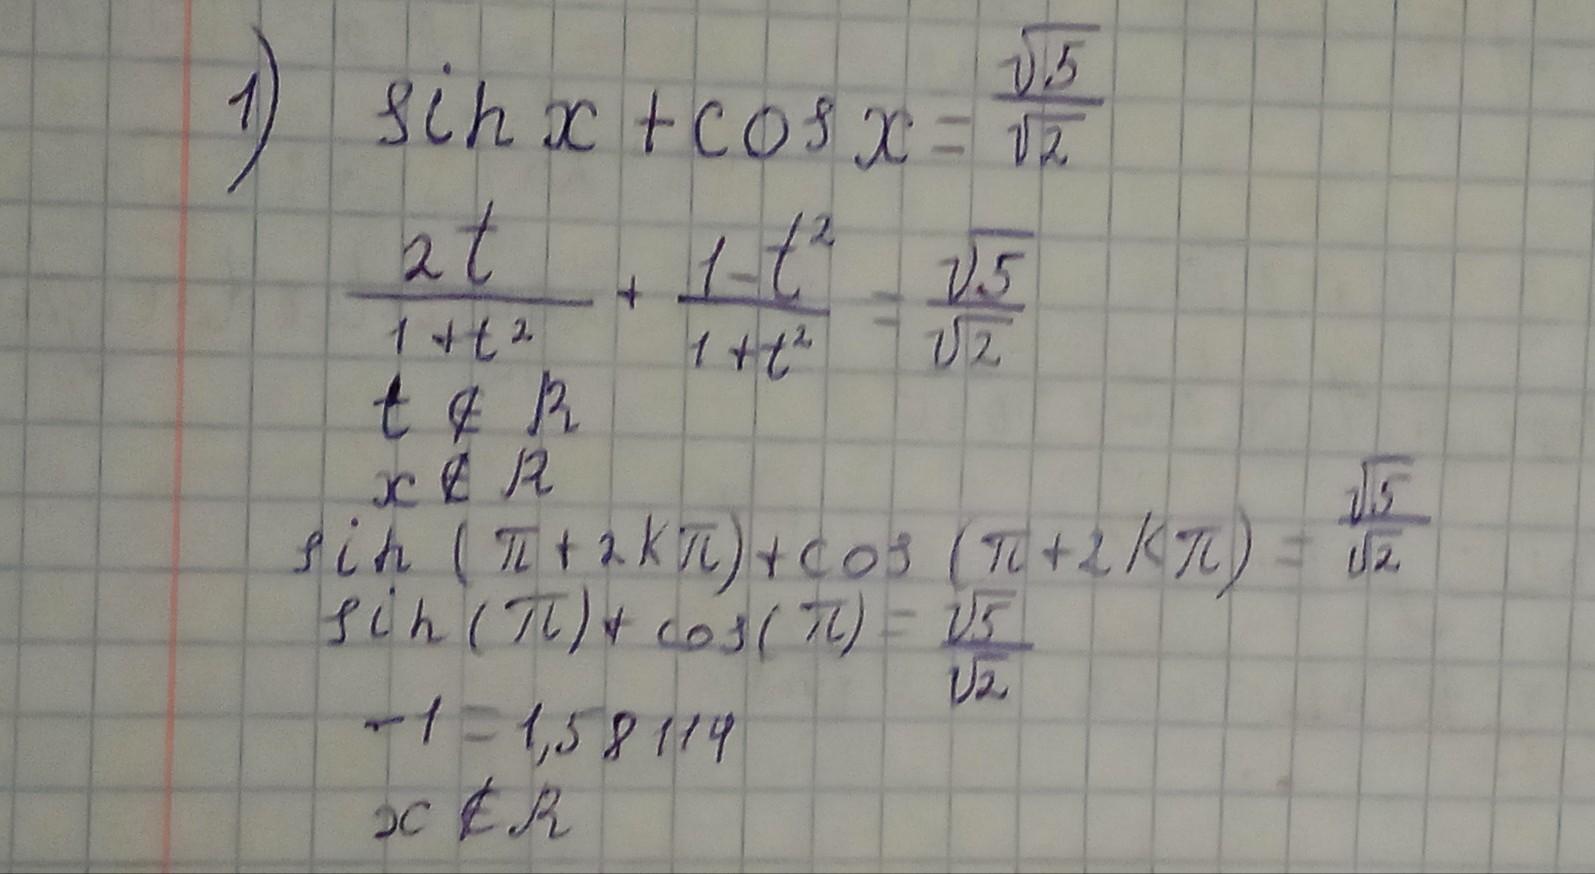 1) sin x + cos x = √5/√2
2t/(1+t²) + (1-t²)/(1+t²) = √5/√2
t ∉ R
x ∉ R
sin (π + 2kπ) + cos (π + 2kπ) = √5/√2
sin (π) + cos (π) = √5/√2
-1 = 1,58114
x ∉ R